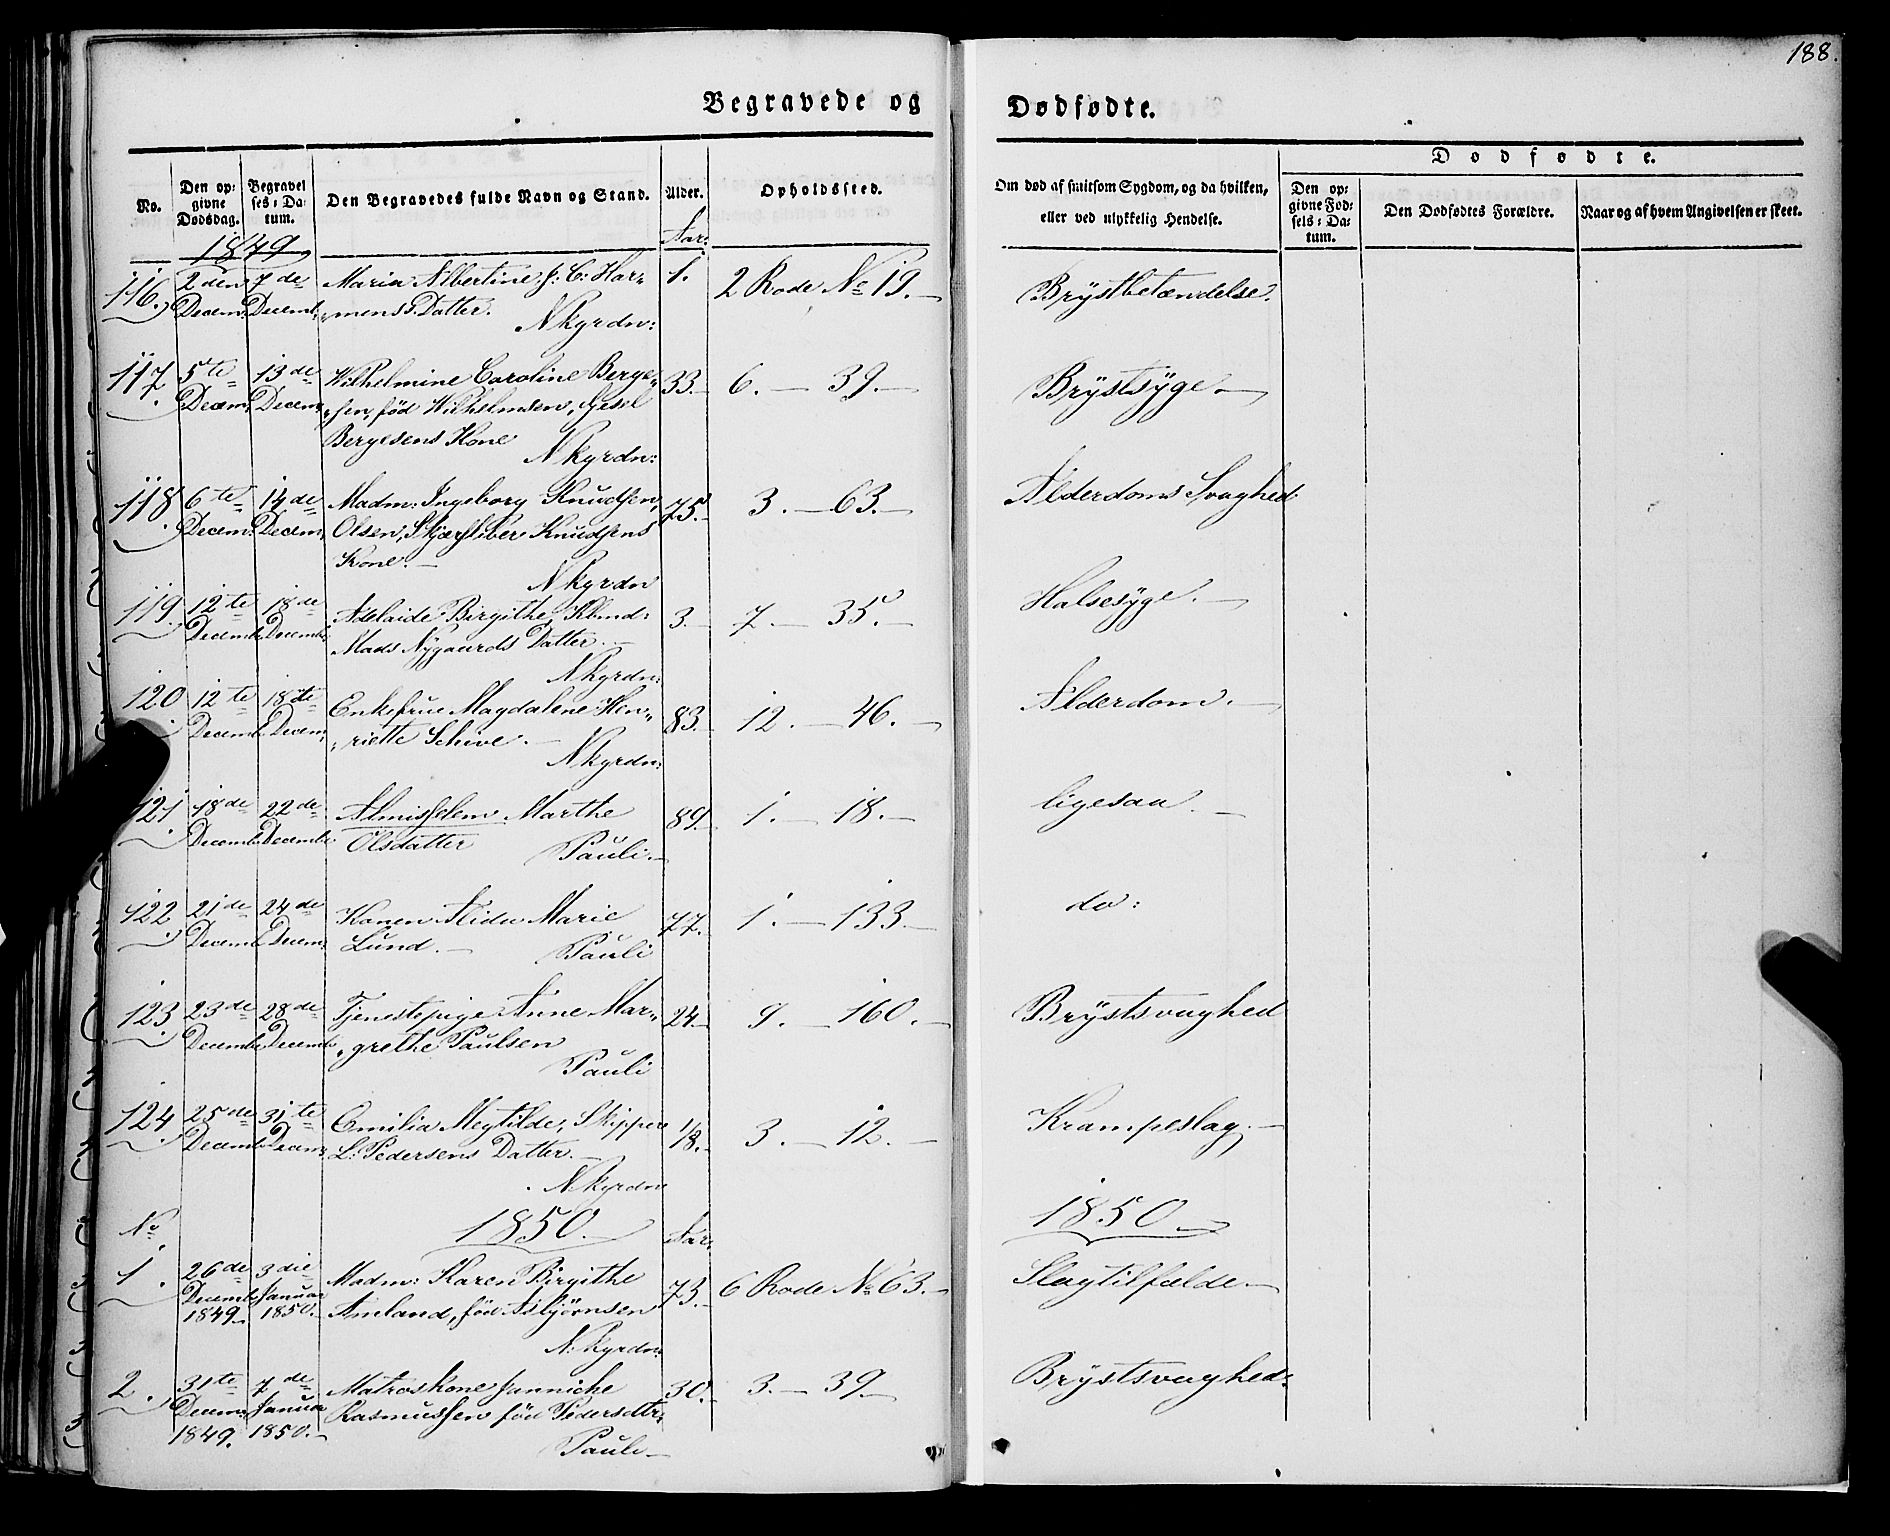 188.
Begravede og Dødfødte.
No.
Den opgivne Dødsdag.
Begravelses-Datum.
Den Begravedes fulde Navn og Stand.
Alder.
Opholdssted.
Om død af smitsom Sygdom, og da hvilken,
eller ved ulykkelig Hendelse.
Dødfødte.
Den opgivne Fødsels-Datum.
Den Dødfødtes Forældre.
Naar og af hvem Angivelsen er skeet.
1849
Aar:
116. 2den 7de Maria Albertine, J: C: Har- 1. 2 Rode No 19. Brystbetændelse.
Decem: Decemb: mens's Datter.
Nkyrdn:
117. 5te 13de Wilhelmine Caroline Berge- 33. 6. — 39. — Brystsyge —
Decem: Decem: sen, fød Wilhelmsen, Gesel
Bergesens Kone
Nkyrdn:
118. 6te 14de Madm: Ingeborg Knudsen, 75. 3. — 63. — Alderdoms Svaghed.
Decem: Decem: Olsen, Skjærsliber Knudsens
Kone. —
Nkyrdn
119. 12te 18de Adelaide Birgithe, Kbmd: 3. 7. — 35. — Halsesyge. —
Decemb: Decemb: Mads Nygaards Datter. —
Nkyrdn:
120 12te 18te Enkefrue Magdalene Hen- 83. 12. — 46. — Alderdom. —
Decemb: Decem: riette Schive. —
Nkyrdn:
121. 18de 22de Almisselem Marthe 89. 1. — 18. — ligesaa. —
Decemb: Decemb: Olsdatter
Pauli. —
122. 21de 24de Konen Alida Marie 77. 1. — 133. — do:
Decemb: Decem: Lund. —
Pauli
123. 23de 28de Tjenestepige Anne Mar- 24. 9. — 160. — Brystsvaghed
Decemb: Decemb: grethe Paulsen
Pauli
124. 25de 31te Emilia Megtilde, Skipper 1/8. 3. — 12. — Krampeslag. —
Decemb: Decem: L: Pedersens Datter. —
N.kyrdn
No 1850. — Aar: 1850. —
1. 26de 3die Madm: Karen Birgithe 73. 6 Rode No 63. — Slagtilfælde. —
Decemb: Januar Amland, fød Asbjørnsen
1849. 1850. —
N.kyrdn:
2. 31te 7de Matroskone Janniche 30. 3. — 39. — Brystsvaghed.
Decem: Januar Rasmussen fød Pedersdtr:
1849. 1850. —
Pauli —